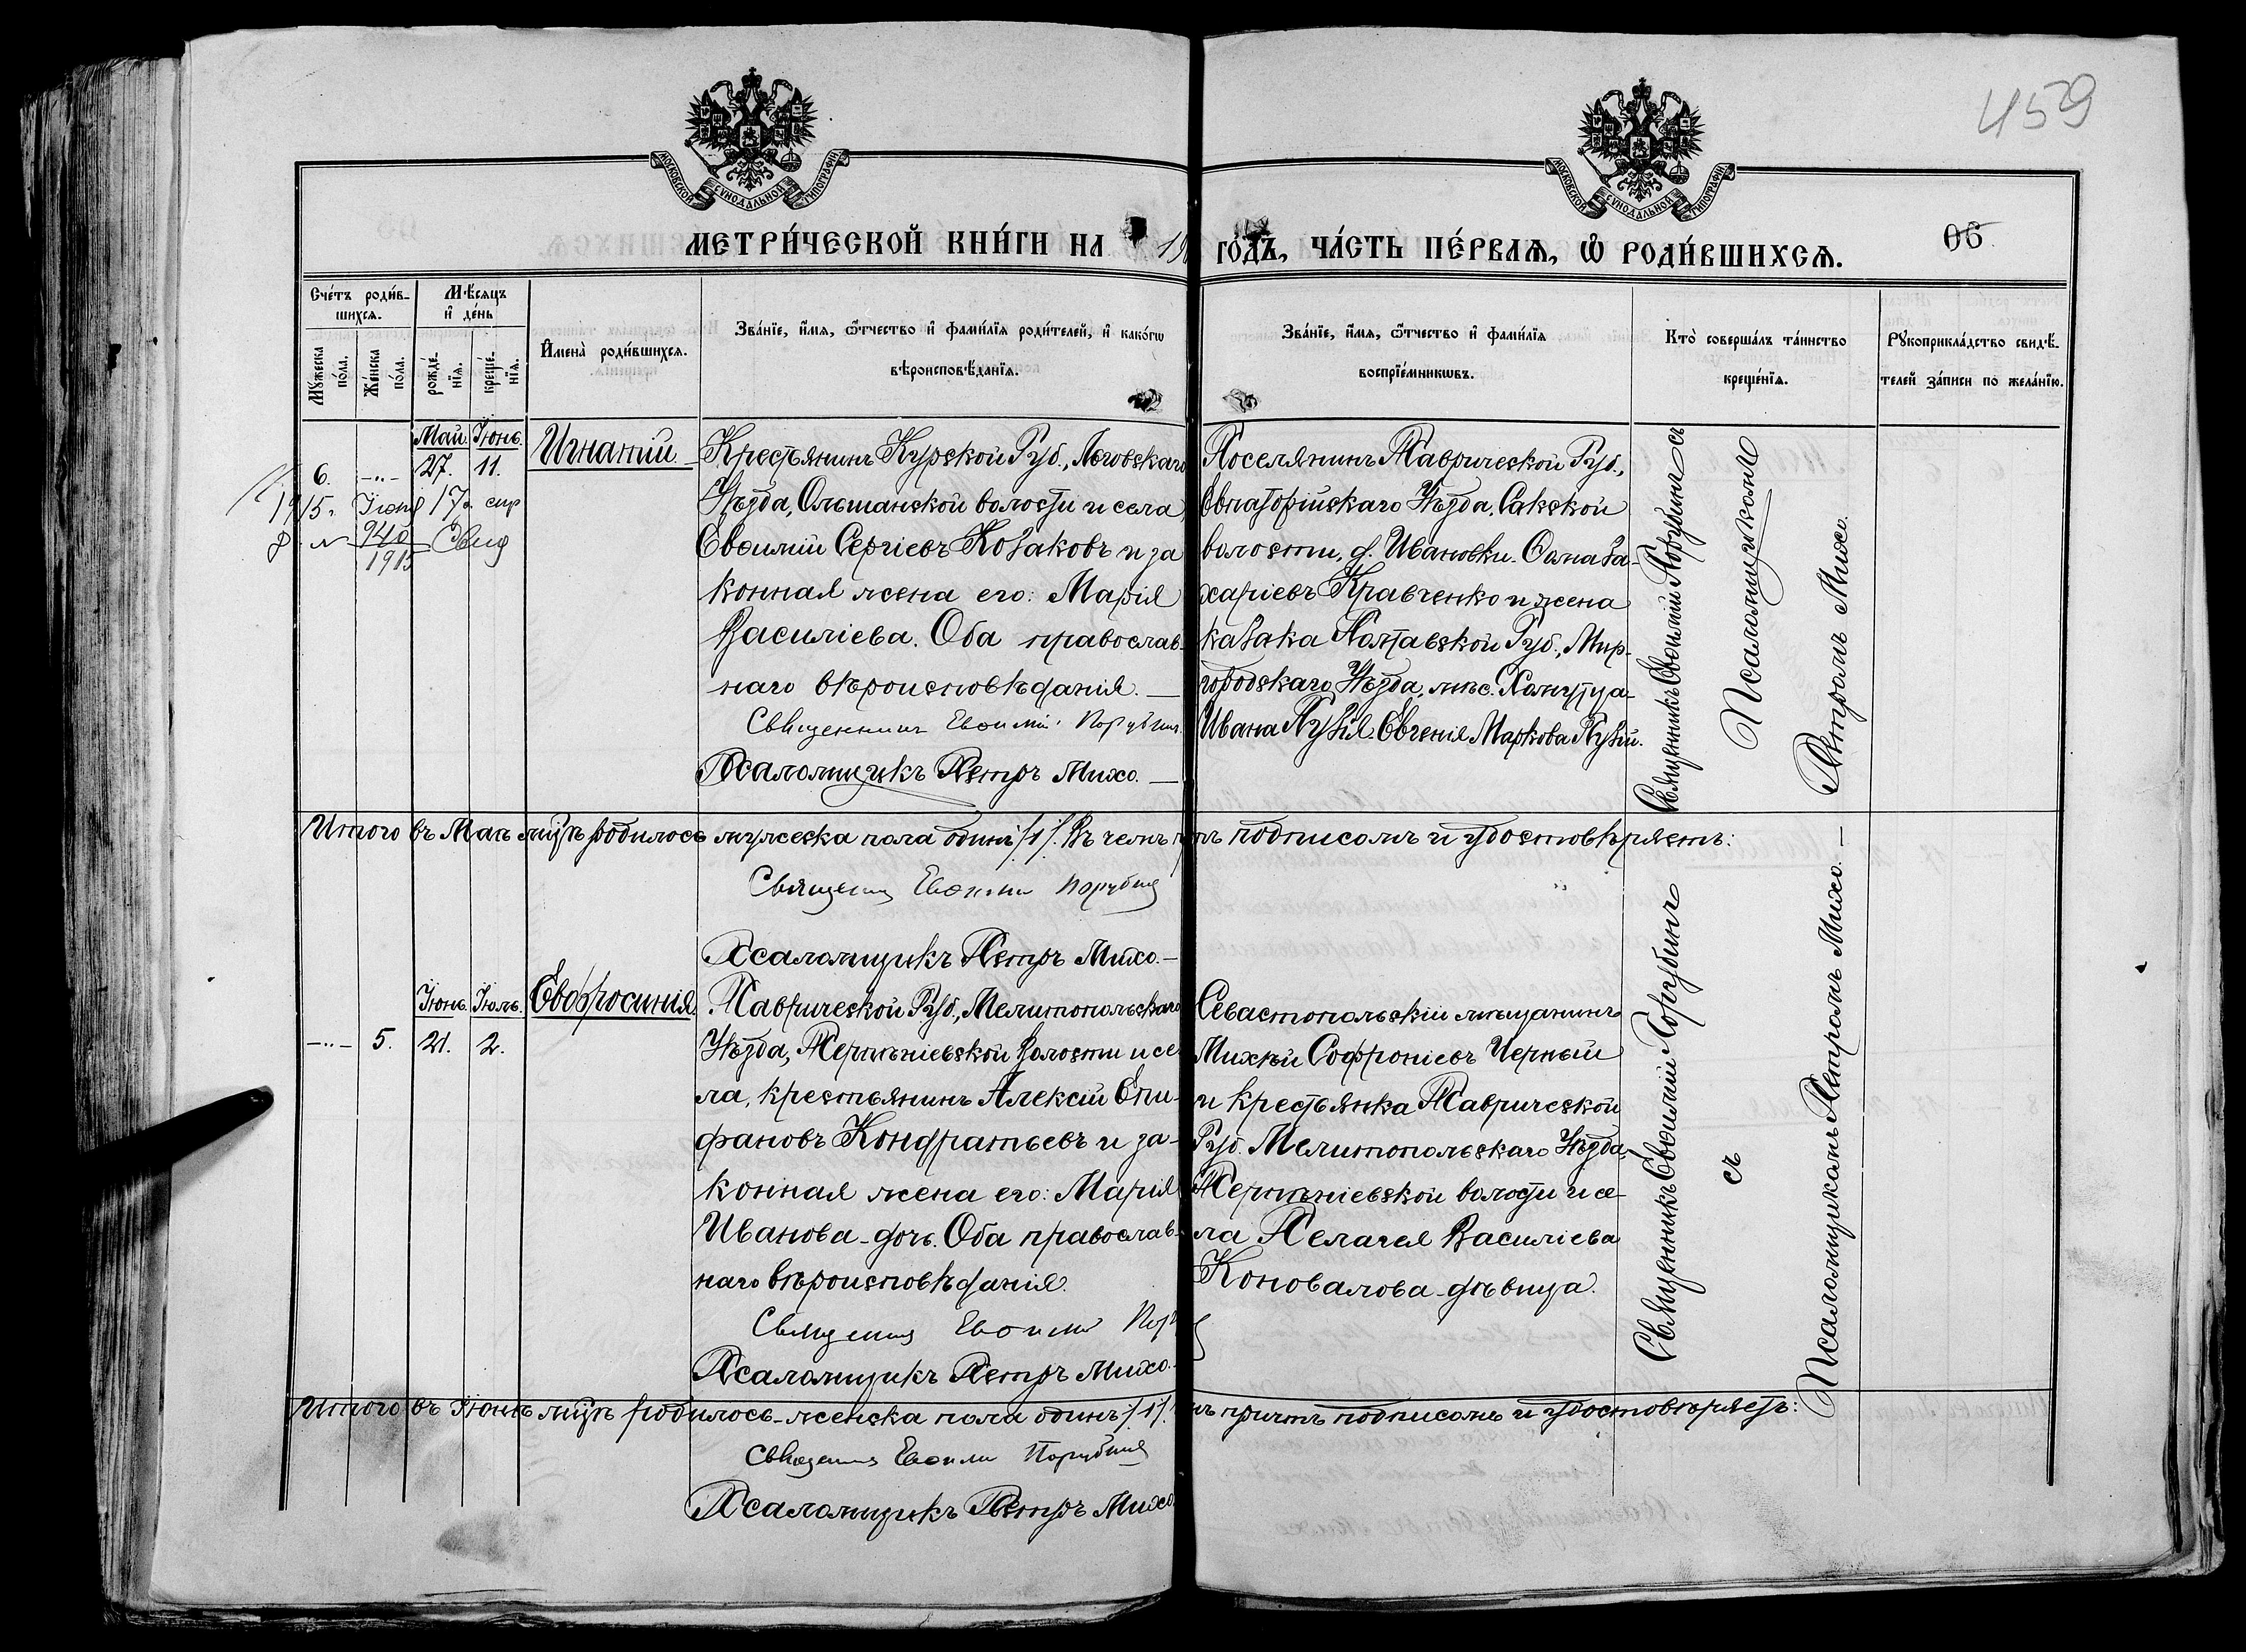 459
МОСКОВСКОЙ СУНОДАЛЬНОЙ ТИПОГРАФІИ
МОСКОВСКОЙ СУНОДАЛЬНОЙ ТИПОГРАФІИ
МЕТРИ́ЧЕСКОЙ КНИ́ГИ НА 19
ГО́ДЪ, ЧА́СТЬ ПЕ́РВАЯ, Ѡ҆ РОДИ́ВШИХСЯ.
06
Сче́тъ роди́в-
шихся.
Мѣ́сяцъ
и҆ де́нь
Мꙋ́жеска
по́ла.
Же́нска
по́ла.
рожде́-
нїя.
креще́-
нїя.
И҆мена̀ роди́вшихся.
Зва́нїе, и҆́мя, ѻ҆́тчество и҆ фами́лїя роди́телей, и҆ како́гѡ
вѣроисповѣ́данїя.
Зва́нїе, и҆́мя, ѻ҆́тчество и҆ фами́лїя
воспрїе́мникѡвъ.
Кто̀ соверша́лъ та́инство
креще́нїя.
Рꙋкоприкла́дство свидѣ́-
телей за́писи по жела́нїю.
Май. Іюнь.
6. -"- 27. 11.
Игнатій
1915 г. Іюня 17 г.
№ 940
1915
Крестьянинъ Курской Губ., Льговскаго
Уѣзда, Ольшанской волости и села
Евѳимій Сергіевъ Козаковъ и за
конная жена его: Марія
Василіева. Оба православ-
наго вѣроисповѣданія. —
Священникъ Евѳимій Порубин
Псаломщикъ Петръ Михо. —
Поселянинъ Таврической Губ.,
Евпаторійскаго Уѣзда, Сакской
волости, д. Ивановки. Ѳома За-
харіевъ Кравченко и жена
казака Полтавской Губ., Мир-
городскаго Уѣзда, мѣс. Хомутца-
Ивана Пузія Евгенія Маркова Пузій.
Священникъ Евѳимій Порубинъ съ
Псаломщикомъ
Петромъ Михо.
Итого въ Маѣ мцѣ родилось мужеска пола одинъ /1/. Въ чемъ
подписомъ и удостовѣряетъ:
Священ Евѳими Порубин
Псаломщикъ Петръ Михо. —
Іюнь. Іюль.
-"- 5. 21. 2.
Евфросинія
Таврической Губ., Мелитопольскаго
Уѣзда, Терпѣніевской Волости и се
ла, крестьянинъ Алексій Епи-
фановъ Кондратьевъ и за-
конная жена его: Марія
Иванова-дочь. Оба православ-
наго вѣроисповѣданія.
Священ Евѳими Пор
Псаломщикъ Петръ Михо.
Севастопольскій мѣщанинъ
Михѣй Софроніевъ Черный
и крестьянка Таврической
Губ. Мелитопольскаго Уѣзда,
Терпѣніевской волости и се-
ла Пелагея Василіева
Коновалова-дѣвица.
Священникъ Евѳимій Порубинъ
съ
Псаломщикомъ Петромъ Михо. —
Итого въ Іюнѣ мцѣ родилось-женска пола одинъ /1/.
причтъ подписомъ и удостовѣряетъ:
Священ Евѳими Порубин
Псаломщикъ Петръ Михо.